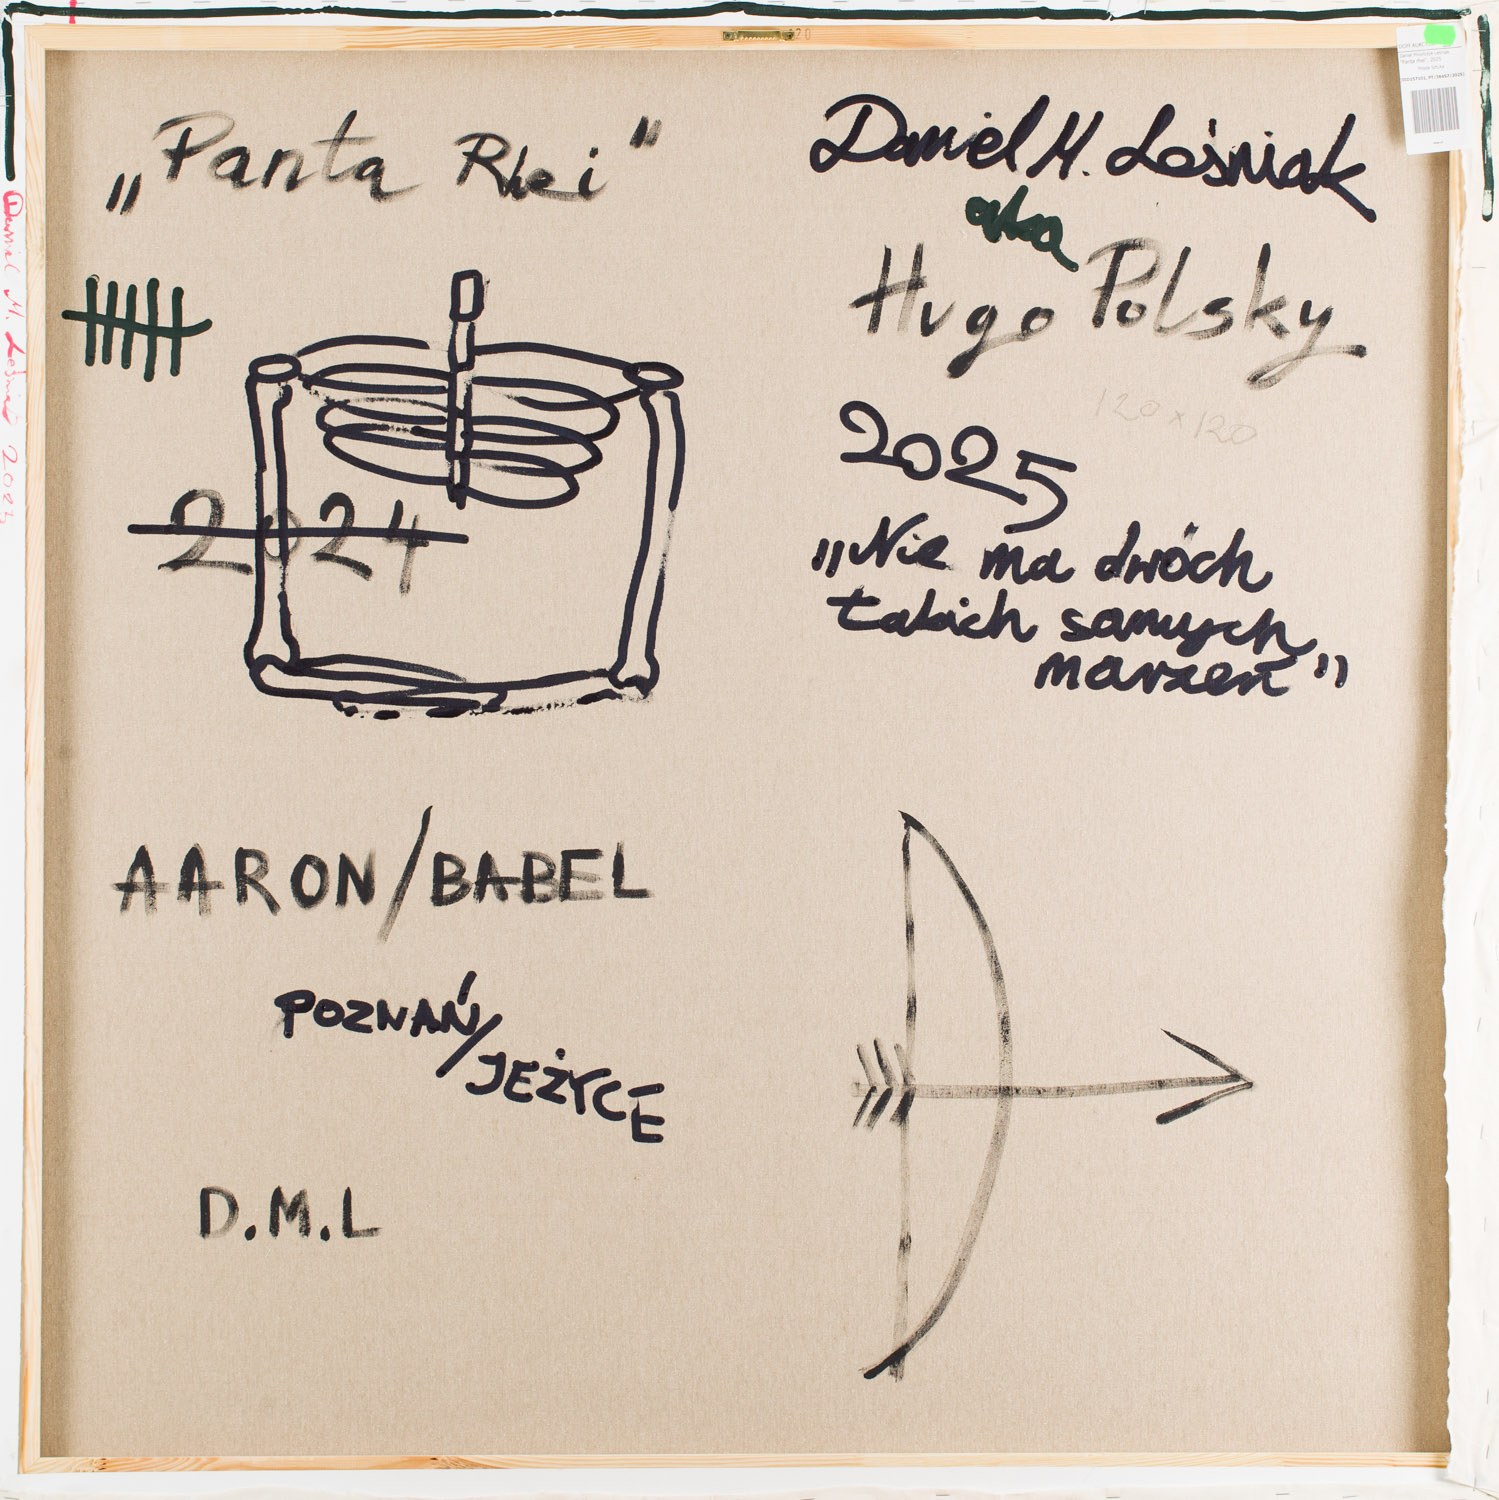 „Panta Rhei"
Daniel M. Leśniak
aka
Hugo Polsky
120 x 120
2025
2024
„Nie ma dwóch
takich samych
marzeń"
AARON/BABEL
POZNAŃ/
JEŻYCE
D.M.L
Daniel M. Leśniak